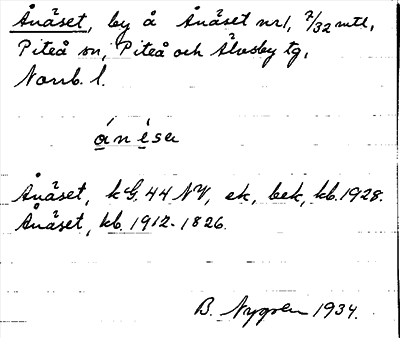 Ånäset, by å Ånäset nr 1, 7/32 mtl,
Piteå sn, Piteå och Älvsby tg,
Norrb. l.
ǻnésa
Ånäset, kG. 44 NV, ek, bek, kb. 1928.
Ånäset, kb. 1912-1826.
B. Nygren 1934.